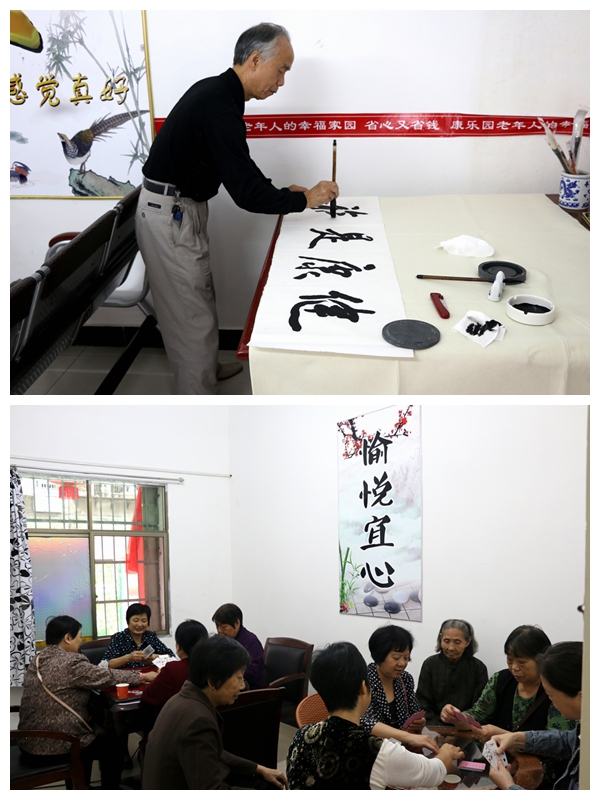 感觉真好
老年人的幸福家园 省心又省钱 康乐园老年人的幸
健康是
愉悦宜心